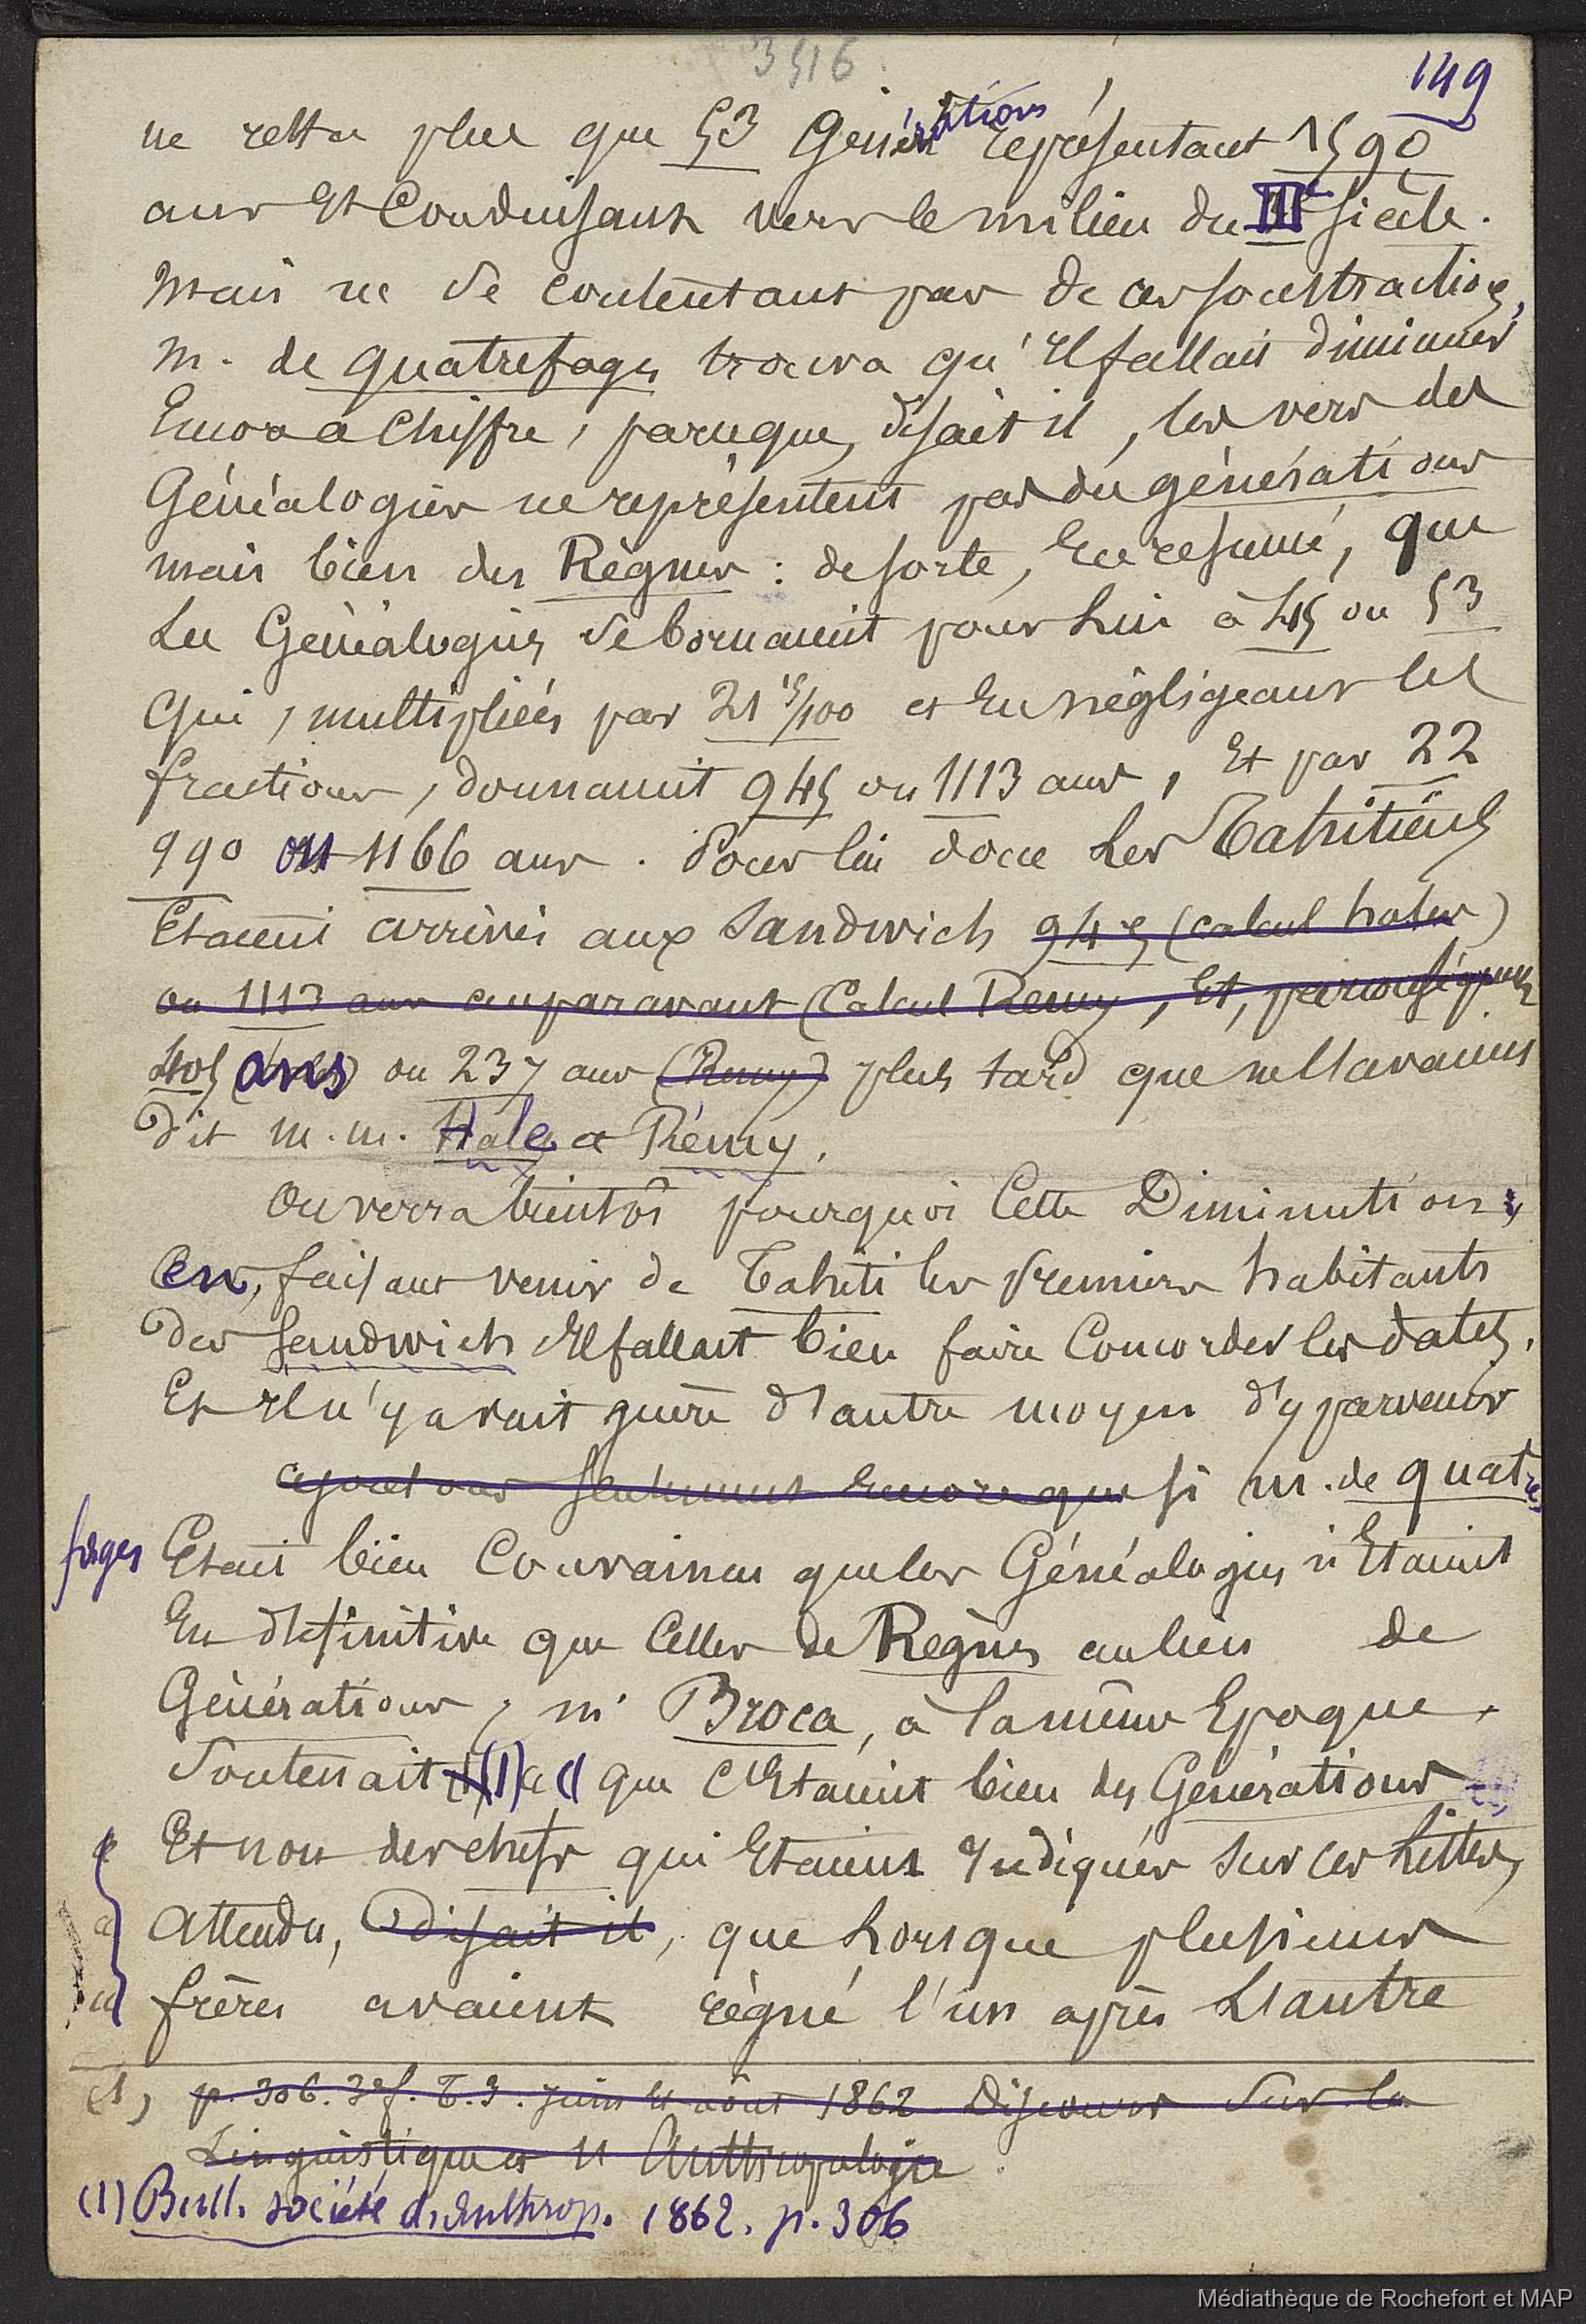 3516
149
ne reste plus que 53 Générations représentant 1590
ans et Conduisant vers le milieu du IIIe siècle.
Mais ne se contentant pas de ces soustractions,
M. de Quatrefages trouva qu'il fallait diminuer
Encore ce Chiffre, parceque, disait il, les vers des
Généalogies ne représentent pas des générations
mais bien des Règnes : de sorte, En résumé, que
Les Généalogies se bornaient pour Lui à 45 ou 53
qui, multipliées par 21 15/100 et En négligeant les
fractions, donnaient 945 ou 1113 ans, Et par 22
990 ou 1166 ans. Pour lui donc Les Tahitiens
Etaient arrivés aux Sandwich 945 (calcul hales)
ou 1113 ans auparavant (Calcul Remy, Et, par conséquent
405 ans ou 237 ans (Remy) plus tard que ne l'avaient
dit M.M. Hale et Rémy.
On verra bientôt pourquoi Cette Diminution,
En, faisant venir de Tahiti les Premiers habitants
Des Sandwich Il fallait bien faire Concorder les dates,
Et Il n'y avait guère d'autre moyen d'y parvenir
ajoutons seulement Encore que si M. de Quatre
fages Etait bien Convaincu que les Généalogies n'Etaient
En définitive que Celles de Règnes au lieu de
Générations, M Broca, à la même Epoque,
Soutenait (1) que C'Etaient bien des Générations
Et non des chefs qui Etaient Indiqués sur ces Listes,
Attendu, disait il, que Lorsque plusieurs
frères avaient règné l'un après L'autre
(1) p. 306. 3e f. T. 3. Juin et août 1862 Discours Sur la
Linguistique et l'Anthropologie
(1) Bull. société d'Anthrop. 1862. p. 306
Médiathèque de Rochefort et MAP